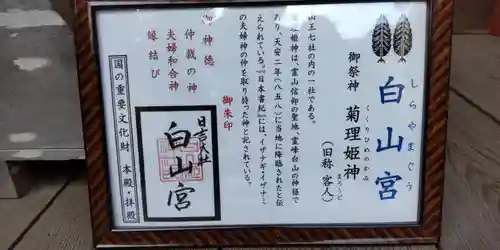 しらやまぐう
白山宮
御祭神 菊理姫神
くくりひめのかみ
(旧称 客人)
まろうど
山王七社の内の一社である。
姫神は、霊山信仰の聖地、霊峰白山の神様で
あり、天安二年(八五八)に当地に降臨されたと伝
えられている。『日本書紀』には、イザナギ・イザナミ
の夫婦神の仲を取り持った神と記されている。
御神徳
仲裁の神
夫婦和合神
縁結び
御朱印
日吉大社
白山宮
国の重要文化財 本殿・拝殿